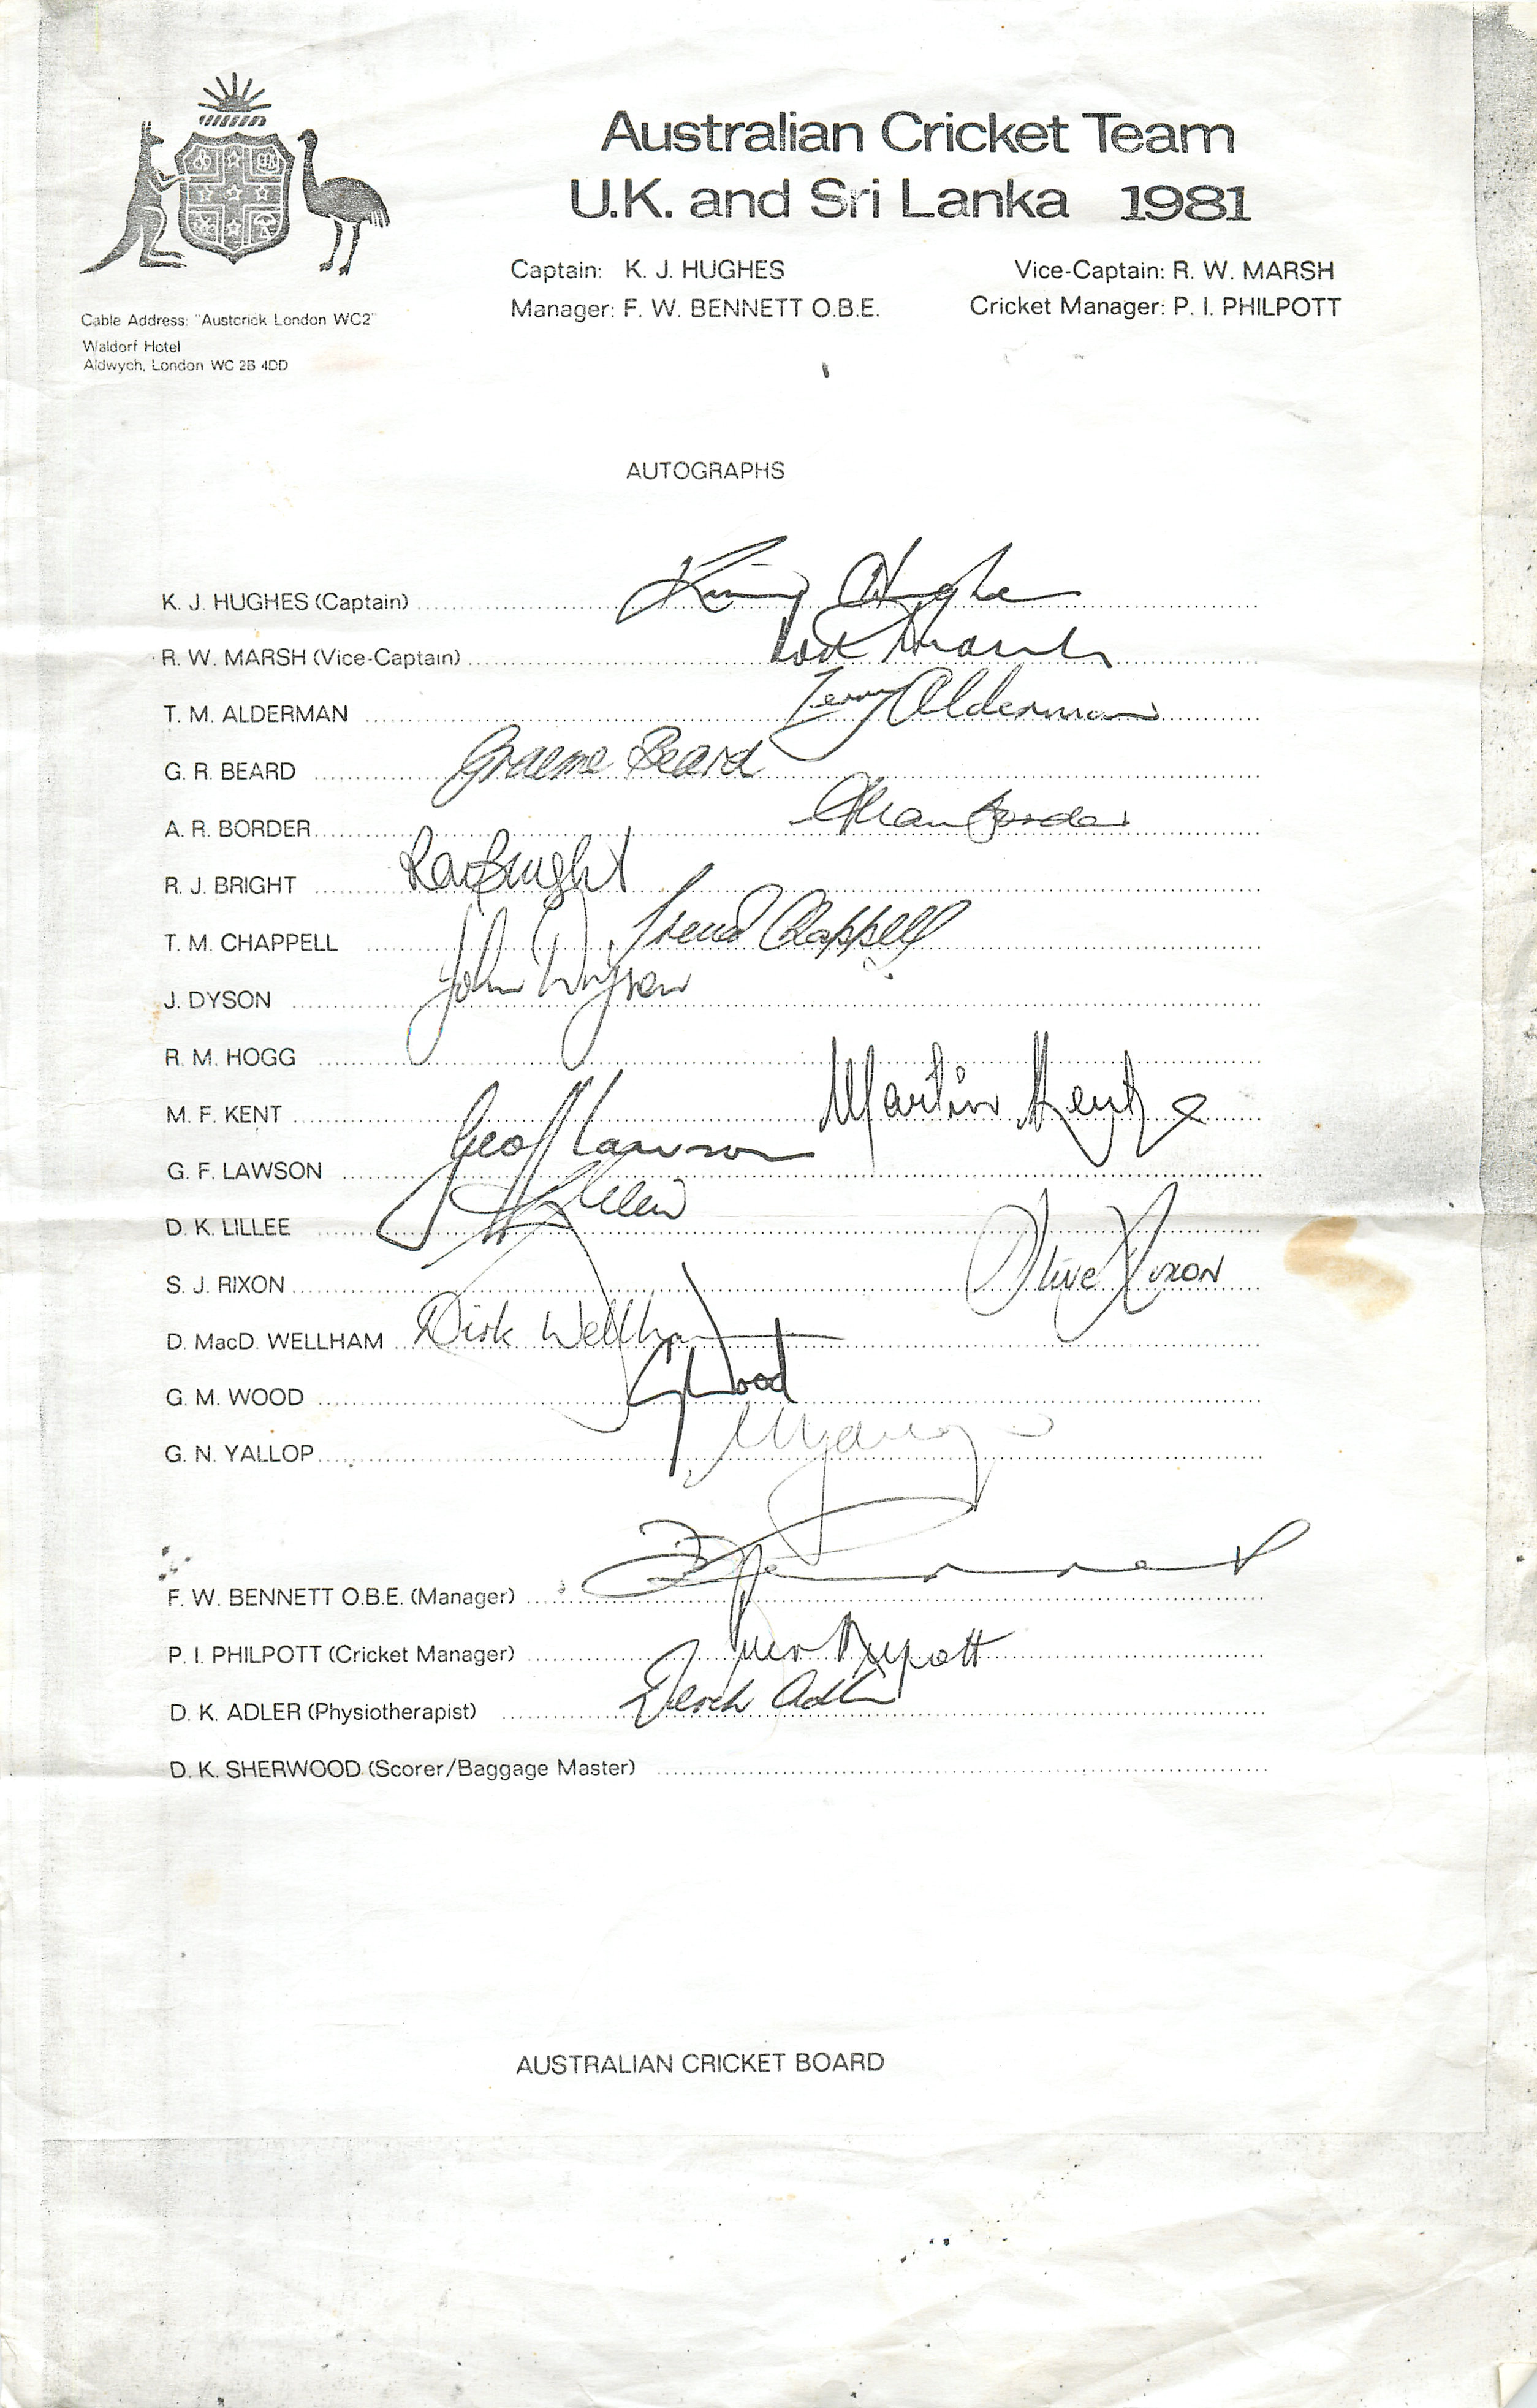 Australian Cricket Team
U.K. and Sri Lanka 1981
Captain: K. J. HUGHES Vice-Captain: R. W. MARSH
Manager: F. W. BENNETT O.B.E. Cricket Manager: P. I. PHILPOTT
Cable Address: "Austcrick London WC2"
Waldorf Hotel
Aldwych, London WC 2B 4DD
AUTOGRAPHS
K. J. HUGHES (Captain) Kim Hughes
R. W. MARSH (Vice-Captain) Rod Marsh
T. M. ALDERMAN Terry Alderman
G. R. BEARD Graeme Beard
A. R. BORDER Allan Border
R. J. BRIGHT Ray Bright
T. M. CHAPPELL Trevor Chappell
J. DYSON John Dyson
R. M. HOGG
M. F. KENT Martin Kent
G. F. LAWSON Geoff Lawson
D. K. LILLEE DK Lillee
S. J. RIXON Steve Rixon
D. MacD. WELLHAM Dirk Wellham
G. M. WOOD G Wood
G. N. YALLOP
F. W. BENNETT O.B.E. (Manager)
P. I. PHILPOTT (Cricket Manager) Peter Philpott
D. K. ADLER (Physiotherapist) Derek Adler
D. K. SHERWOOD (Scorer/Baggage Master)
AUSTRALIAN CRICKET BOARD